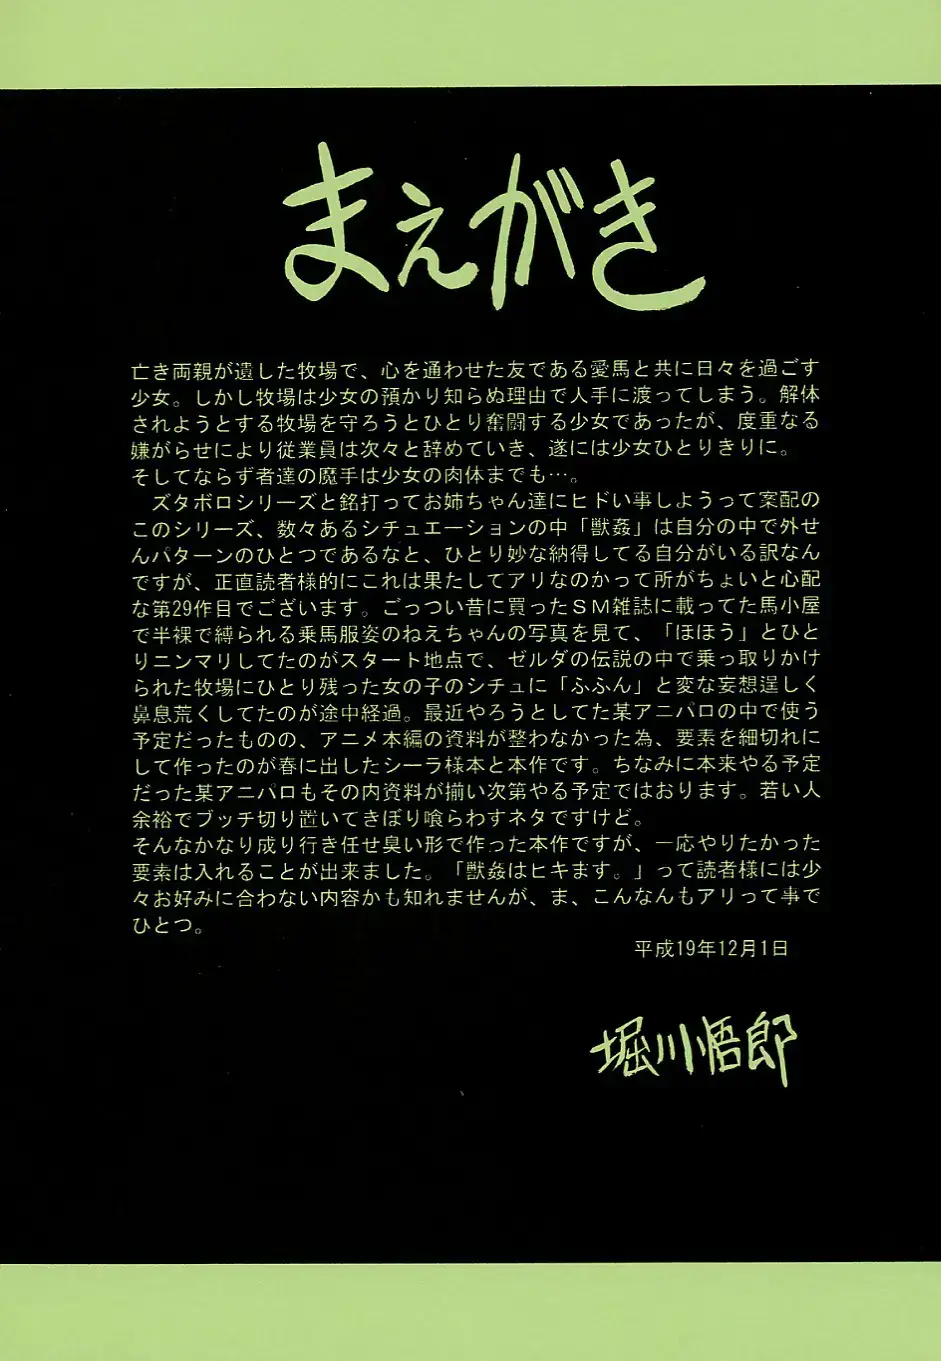 まえがき
亡き両親が遺した牧場で、心を通わせた友である愛馬と共に日々を過ごす
少女。しかし牧場は少女の預かり知らぬ理由で人手に渡ってしまう。解体
されようとする牧場を守ろうとひとり奮闘する少女であったが、度重なる
嫌がらせにより従業員は次々と辞めていき、遂には少女ひとりきりに。
そしてならず者達の魔手は少女の肉体までも…。
　ズタボロシリーズと銘打ってお姉ちゃん達にヒドい事しようって案配の
このシリーズ、数々あるシチュエーションの中「獣姦」は自分の中で外せ
んパターンのひとつであるなと、ひとり妙な納得してる自分がいる訳なん
ですが、正直読者様的にこれは果たしてアリなのかって所がちょいと心配
な第29作目でございます。ごっつい昔に買ったＳＭ雑誌に載ってた馬小屋
で半裸で縛られる乗馬服姿のねえちゃんの写真を見て、「ほほう」とひと
りニンマリしてたのがスタート地点で、ゼルダの伝説の中で乗っ取りかけ
られた牧場にひとり残った女の子のシチュに「ふふん」と変な妄想逞しく
鼻息荒くしてたのが途中経過。最近やろうとしてた某アニパロの中で使う
予定だったものの、アニメ本編の資料が整わなかった為、要素を細切れに
して作ったのが春に出したシーラ様本と本作です。ちなみに本来やる予定
だった某アニパロもその内資料が揃い次第やる予定ではおります。若い人
余裕でブッチ切り置いてきぼり喰らわすネタですけど。
そんなかなり成り行き任せ臭い形で作った本作ですが、一応やりたかった
要素は入れることが出来ました。「獣姦はヒキます。」って読者様には少
々お好みに合わない内容かも知れませんが、ま、こんなんもアリって事で
ひとつ。
平成19年12月1日
堀川悟郎